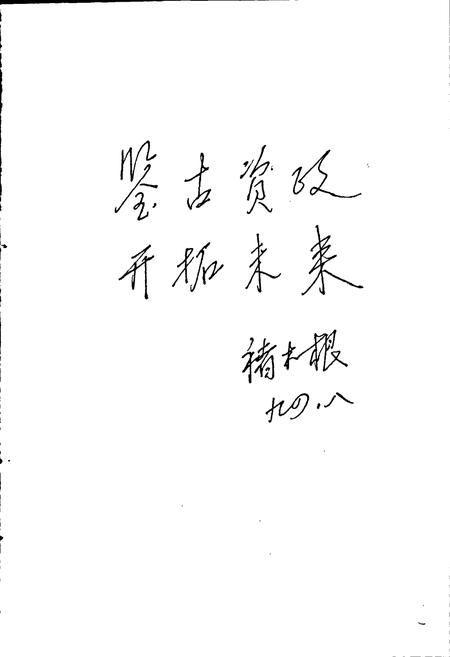 鉴古资政
开拓未来
褚木根
九四.八